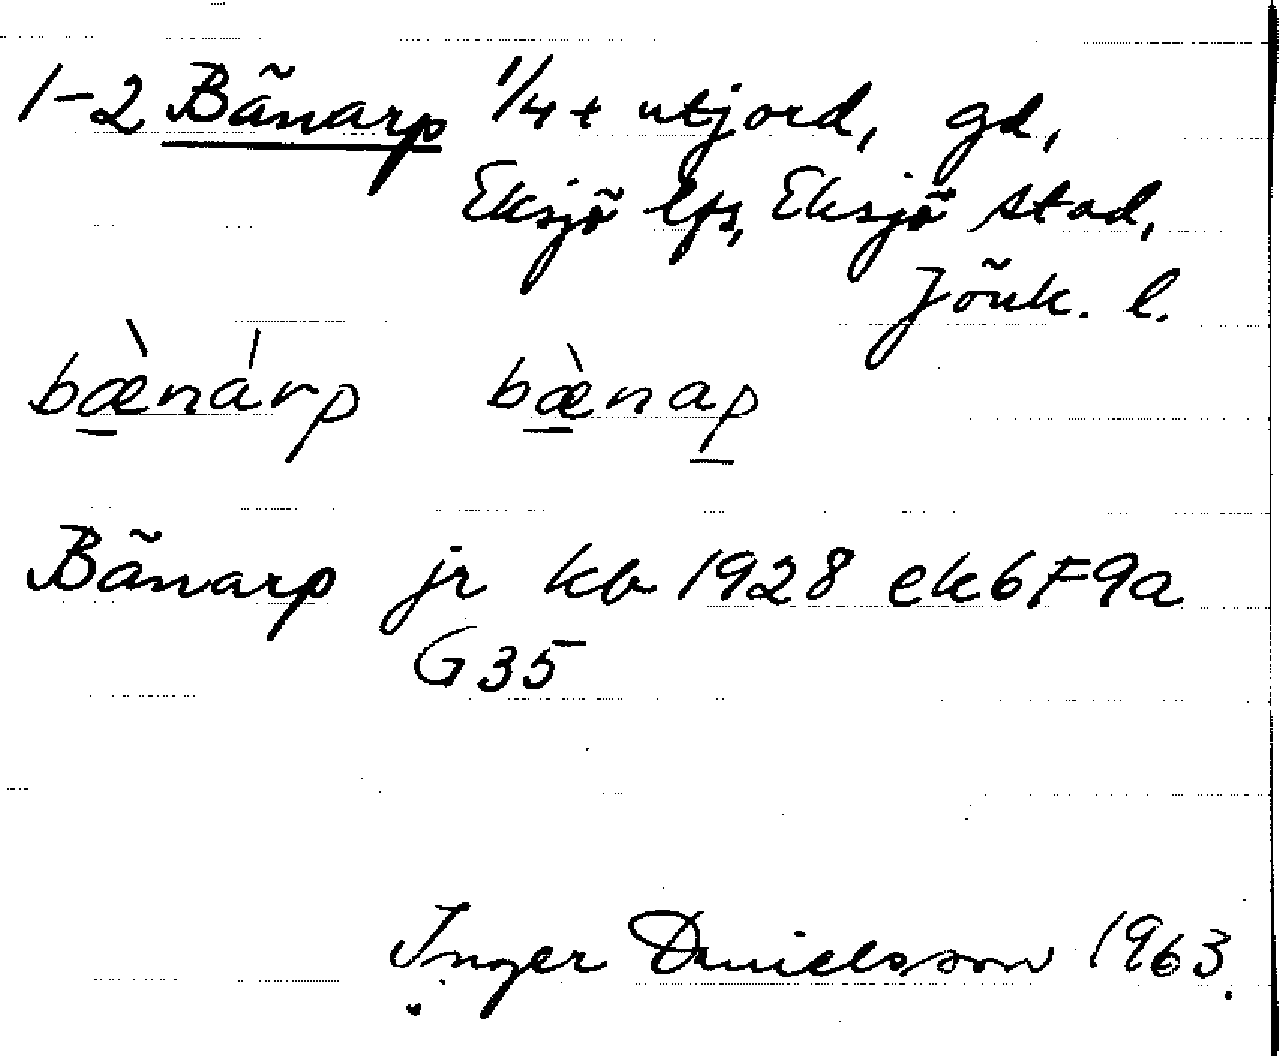 1-2 Bänarp 1/4 + utjord, gd,
Eksjö lfs, Eksjö stad,
Jönk. l.
bæ̀nárp bæ̀nap
Bänarp jr kb 1928 ek6F9a
G35
Inger Danielsson 1963.